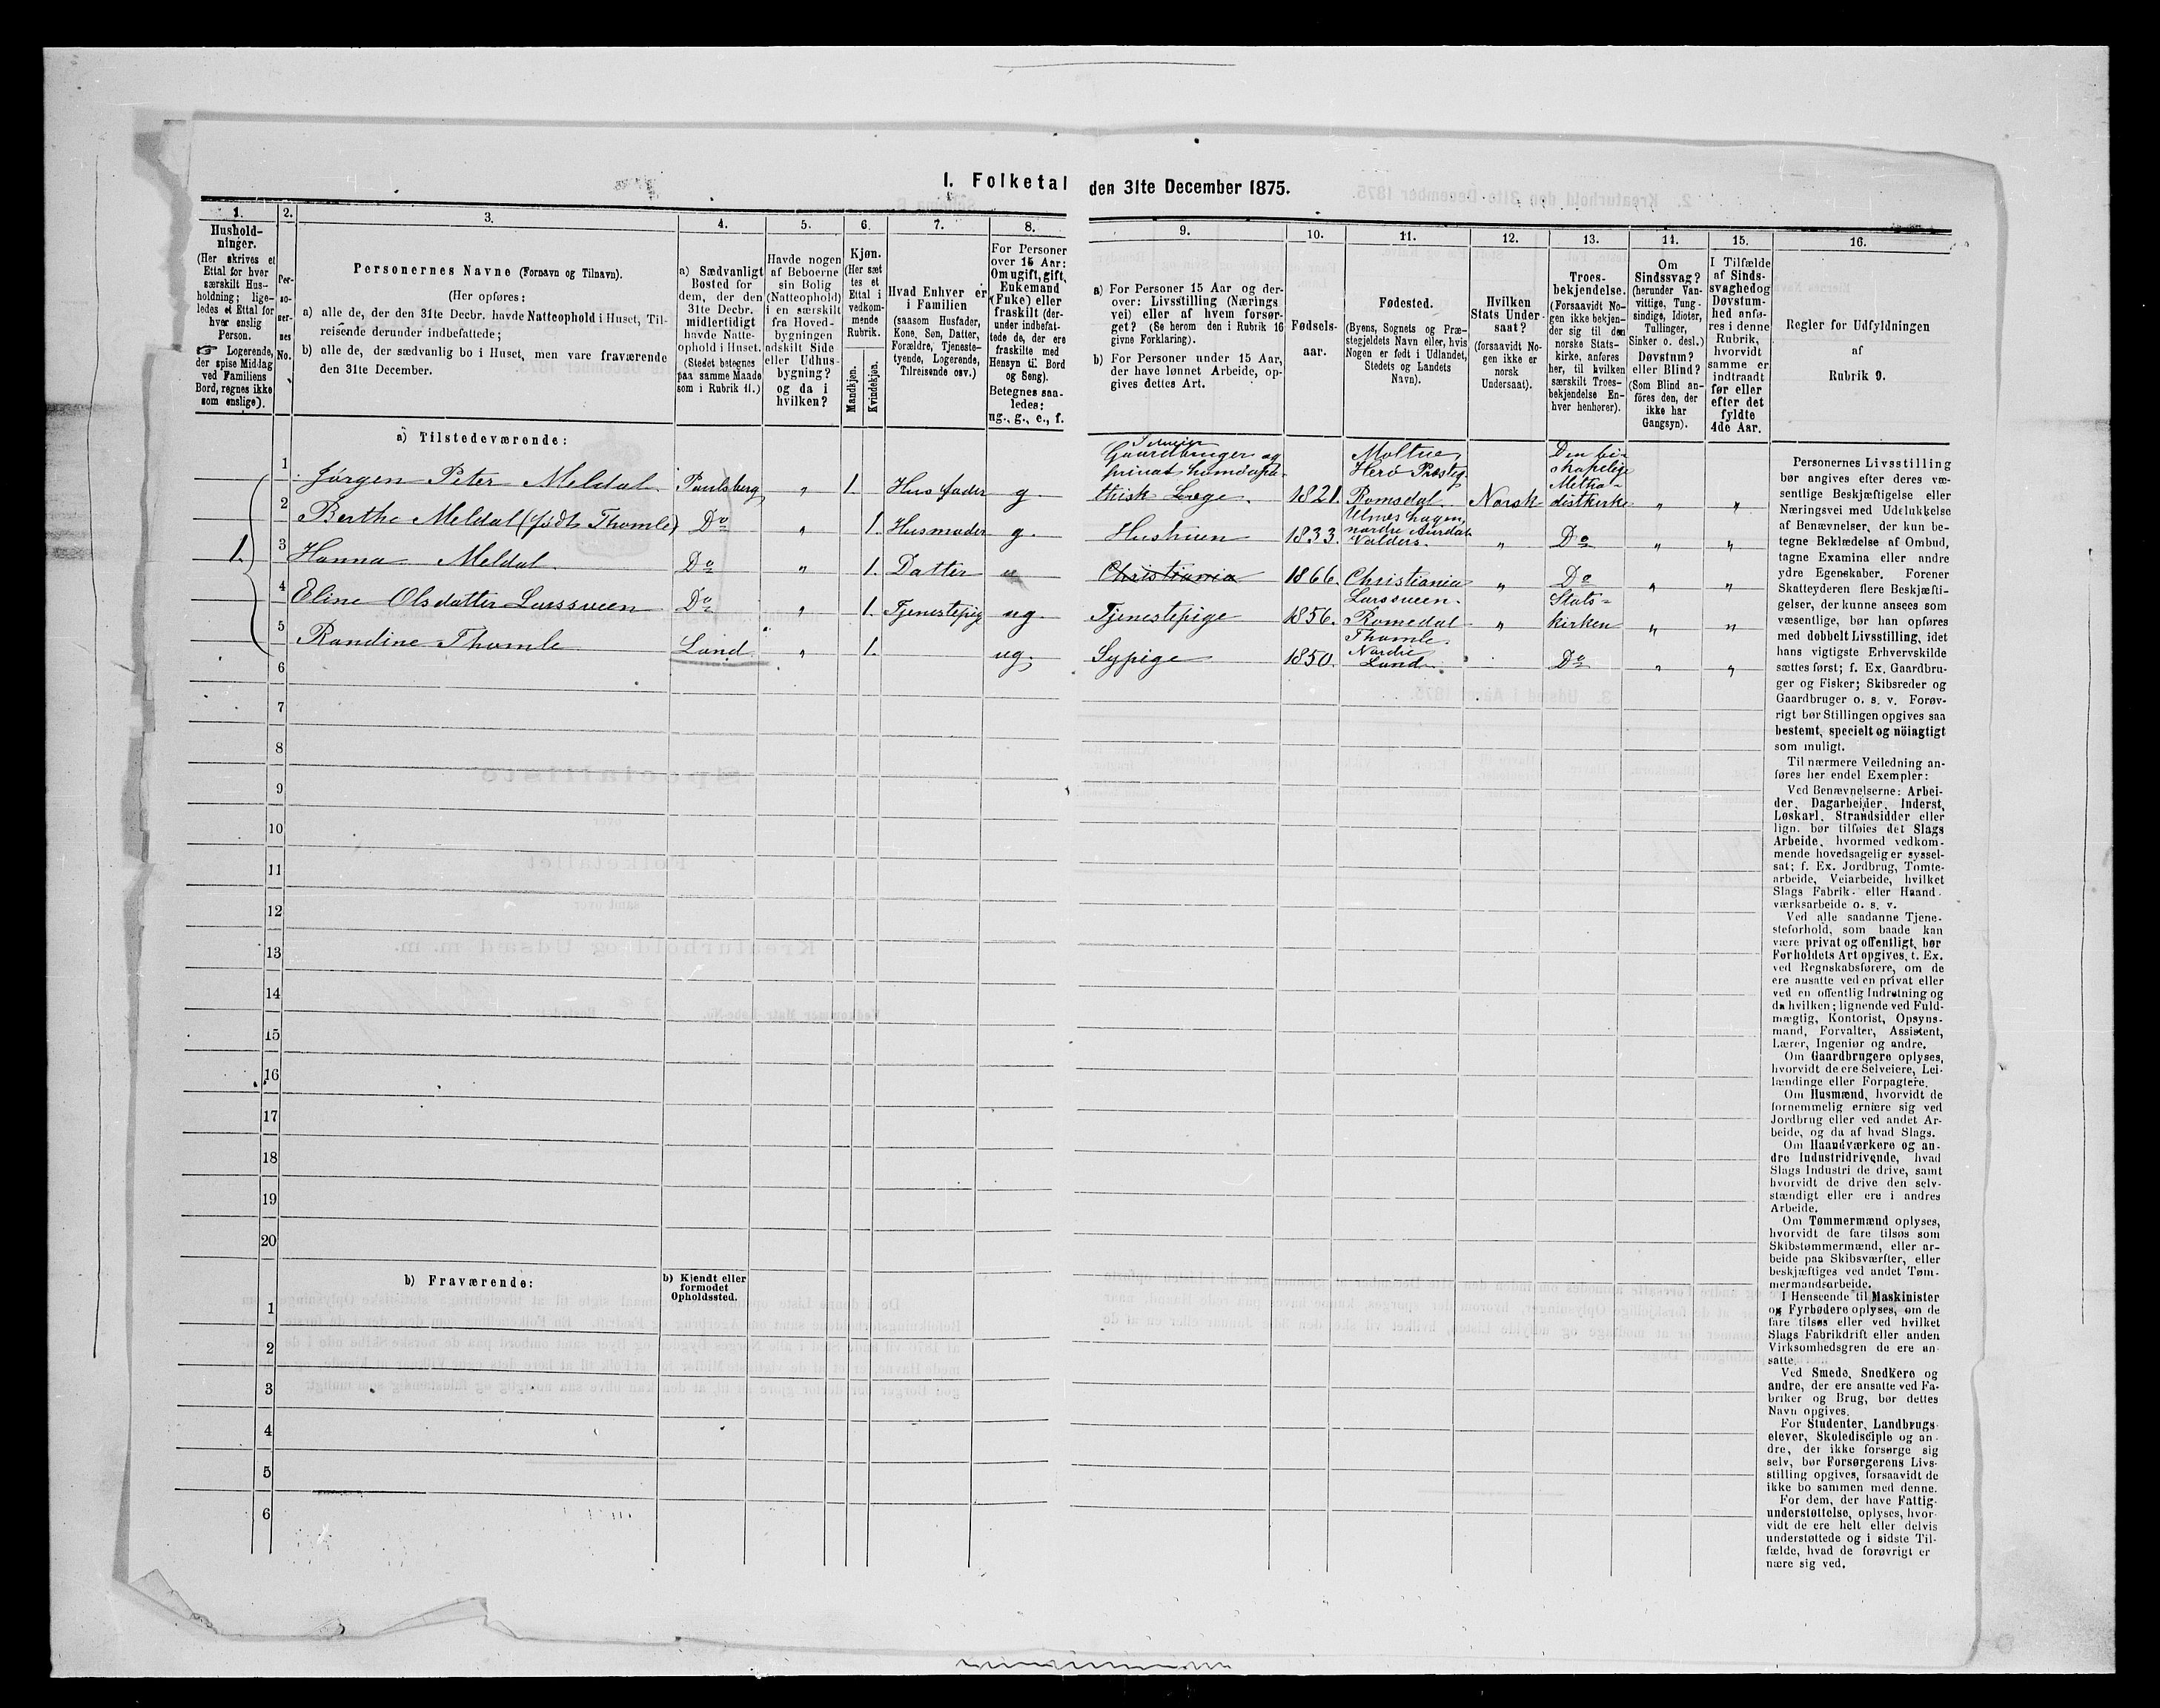 I. Folketal den 31te December 1875.
1.
Hushold-
ninger.
(Her skrives et
Ettal for hver
særskilt Hus-
holdning; lige-
ledes et Ettal for
hver enslig
Person.
☞ Logerende,
der spise Middag
ved Familiens
Bord, regnes ikke
som enslige).
2.
Per-
so-
ner-
nes
No.
3.
Personernes Navne (Fornavn og Tilnavn).
(Her opføres:
a) alle de, der den 31te Decbr. havde Natteophold i Huset, Til-
reisende derunder indbefattede;
b) alle de, der sædvanlig bo i Huset, men vare fraværende
den 31te December.
4.
a) Sædvanligt
Bosted for
dem, der den
31te Decbr.
midlertidigt
havde Natte-
ophold i Huset.
(Stedet betegnes
paa samme Maade
som i Rubrik 11.)
5.
Havde nogen
af Beboerne
sin Bolig
(Natteophold)
i en særskilt
fra Hoved-
bygningen
adskilt Side
eller Udhus-
bygning?
og da i
hvilken?
6.
Kjøn.
(Her sæt
tes et
Ettal i
vedkom-
mende
Rubrik.
Mandkjøn.
Kvindekjøn.
7.
Hvad Enhver er
i Familien
(saasom Husfader,
Kone, Søn, Datter,
Forældre, Tjeneste-
tyende, Logerende,
Tilreisende osv.)
8.
For Personer
over 15 Aar:
Om ugift, gift,
Enkemand
(Enke) eller
fraskilt (der-
under indbefat-
tede de, der ere
fraskilte med
Hensyn til Bord
og Seng).
Betegnes saa-
ledes:
ug., g., e., f.
9.
a) For Personer 15 Aar og der-
over: Livsstilling (Nærings
vei) eller af hvem forsør-
get? (Se herom den i Rubrik 16
givne Forklaring).
b) For Personer under 15 Aar,
der have lønnet Arbeide, op-
gives dettes Art.
10.
Fødsels-
aar.
11.
Fødested.
(Byens, Sognets og Præ-
stegjeldets Navn eller, hvis
Nogen er født i Udlandet,
Stedets og Landets
Navn).
12.
Hvilken
Stats Under-
saat?
(forsaavidt No-
gen ikke er
norsk
Undersaat).
13.
Troes-
bekjendelse.
(Forsaavidt No-
gen ikke bekjen-
der sig til den
norske Stats-
kirke, anføres
her, til hvilken
særskilt Troes-
bekjendelse En-
hver henhører).
14.
Om
Sindssvag?
(herunder Van-
vittige, Tung-
sindige, Idioter,
Tullinger,
Sinker o. desl.)
Døvstum?
eller Blind?
(Som Blind an-
føres den, der
ikke har
Gangsyn).
15.
I Tilfælde
af Sinds-
svaghedog
Døvstum-
hed anfø-
res i denne
Rubrik,
hvorvidt
samme er
indtraadt
før eller
efter det
fyldte
4de Aar.
16.
Regler for Udfyldningen
af
Rubrik 9.
a) Tilstedeværende:
1 Jørgen Peter Meldal Paulsberg „ 1. Husfader g. Gaardbruger og privat homøopa-thisk Læge. 1821. Herø Præsteg. Romsdal. Norsk Den bi-skopelige Metho-distkirke „ „
2 Berthe Meldal (født Thomle) Do „ 1. Husmoder g. Hustruen 1833. nordre Aurdal Valders. „ Do „ „
1. 3 Hanna Meldal Do „ 1. Datter Christiania 1866. Christiania „ Do „ „
4 Eline Olsdatter Larssveen Do „ 1. Tjenestepig ug. Tjenestepige 1856. Larssveen. Romedal „ Stats-kirken „ „
5 Randine Thomle Land „ 1. ug. Sypige 1850. Thomle. Nordre Land Do „ „
6
7
8
9
10
11
12
13
14
15
16
17
18
19
20
b) Fraværende:
b) Kjendt eller
formodet
Opholdssted.
1
2
3
4
5
6
Personernes Livsstilling
bør angives efter deres væ-
sentlige Beskjæftigelse eller
Næringsvei med Udelukkelse
af Benævnelser, der kun be-
tegne Beklædelse af Ombud,
tagne Examina eller andre
ydre Egenskaber. Forener
Skatteyderen flere Beskjæfti-
gelser, der kunne ansees som
væsentlige, bør han opføres
med dobbelt Livsstilling, idet
hans vigtigste Erhvervskilde
sættes først; f. Ex. Gaardbru-
ger og Fisker; Skibsreder og
Gaardbruger o. s. v. Forøv-
rigt bør Stillingen opgives saa
bestemt, specielt og nöiagtigt
som muligt.
Til nærmere Veiledning an-
føres her endel Exempler:
Ved Benævnelserne: Arbei-
der, Dagarbeider, Inderst,
Løskarl, Strandsidder eller
lign. bør tilføies det Slags
Arbeide, hvormed vedkom-
mende hovedsagelig er syssel-
sat; f. Ex. Jordbrug, Tomte-
arbeide, Veiarbeide, hvilket
Slags Fabrik- eller Haand-
værksarbeide o. s. v.
Ved alle saadanne Tjene-
steforhold, som baade kan
være privat og offentligt, bør
Forholdets Art opgives, t. Ex.
ved Regnskabsførere, om de
ere ansatte ved en privat eller
ved en offentlig Indretning og
da hvilken; lignende ved Fuld-
mægtig, Kontorist, Opsyns-
mand, Forvalter, Assistent,
Lærer, Ingeniør og andre.
Om Gaardbrugere oplyses,
hvorvidt de ere Selveiere, Lei-
lændinge eller Forpagtere.
Om Husmænd, hvorvidt de
fornemmelig ernære sig ved
Jordbrug eller ved andet Ar-
beide, og da af hvad Slags.
Om Haandværkere og an-
dre Industridrivende, hvad
Slags Industri de drive, samt
hvorvidt de drive den selv-
stændigt eller ere i andres
Arbeide.
Om Tømmermænd oplyses,
hvorvidt de fare tilsøs som
Skibstømmermænd, eller ar-
beide paa Skibsværfter, eller
beskjæftiges ved andet Tøm-
mermandsarbeide.
I Henseende til Maskinister
og Fyrbødere oplyses, om de
fare tilsøs eller ved hvilket
Slags Fabrikdrift eller anden
Virksomhedsgren de ere an-
satte.
Ved Smede, Snedkere og
andre, der ere ansatte ved Fa-
briker og Brug, bør dettes
Navn opgives.
For Studenter, Landbrugs-
elever, Skoledisciple og an-
dre, der ikke forsørge sig
selv, bør Forsørgerens Livs-
stilling opgives, forsaavidt de
ikke bo sammen med denne.
For dem, der have Fattig-
understøttelse, oplyses, hvor-
vidt de ere helt eller delvis
understøttede og i sidste Til-
fælde, hvad de forøvrigt er
nære sig ved.